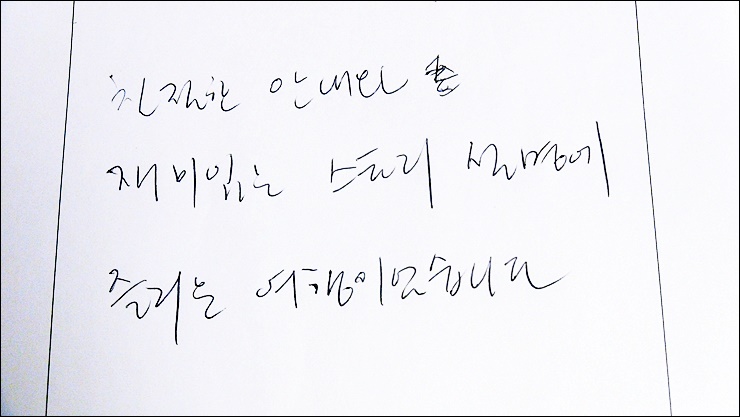 친절한 안내와
재미있는 스토리 설명에
즐거운 여행이었습니다